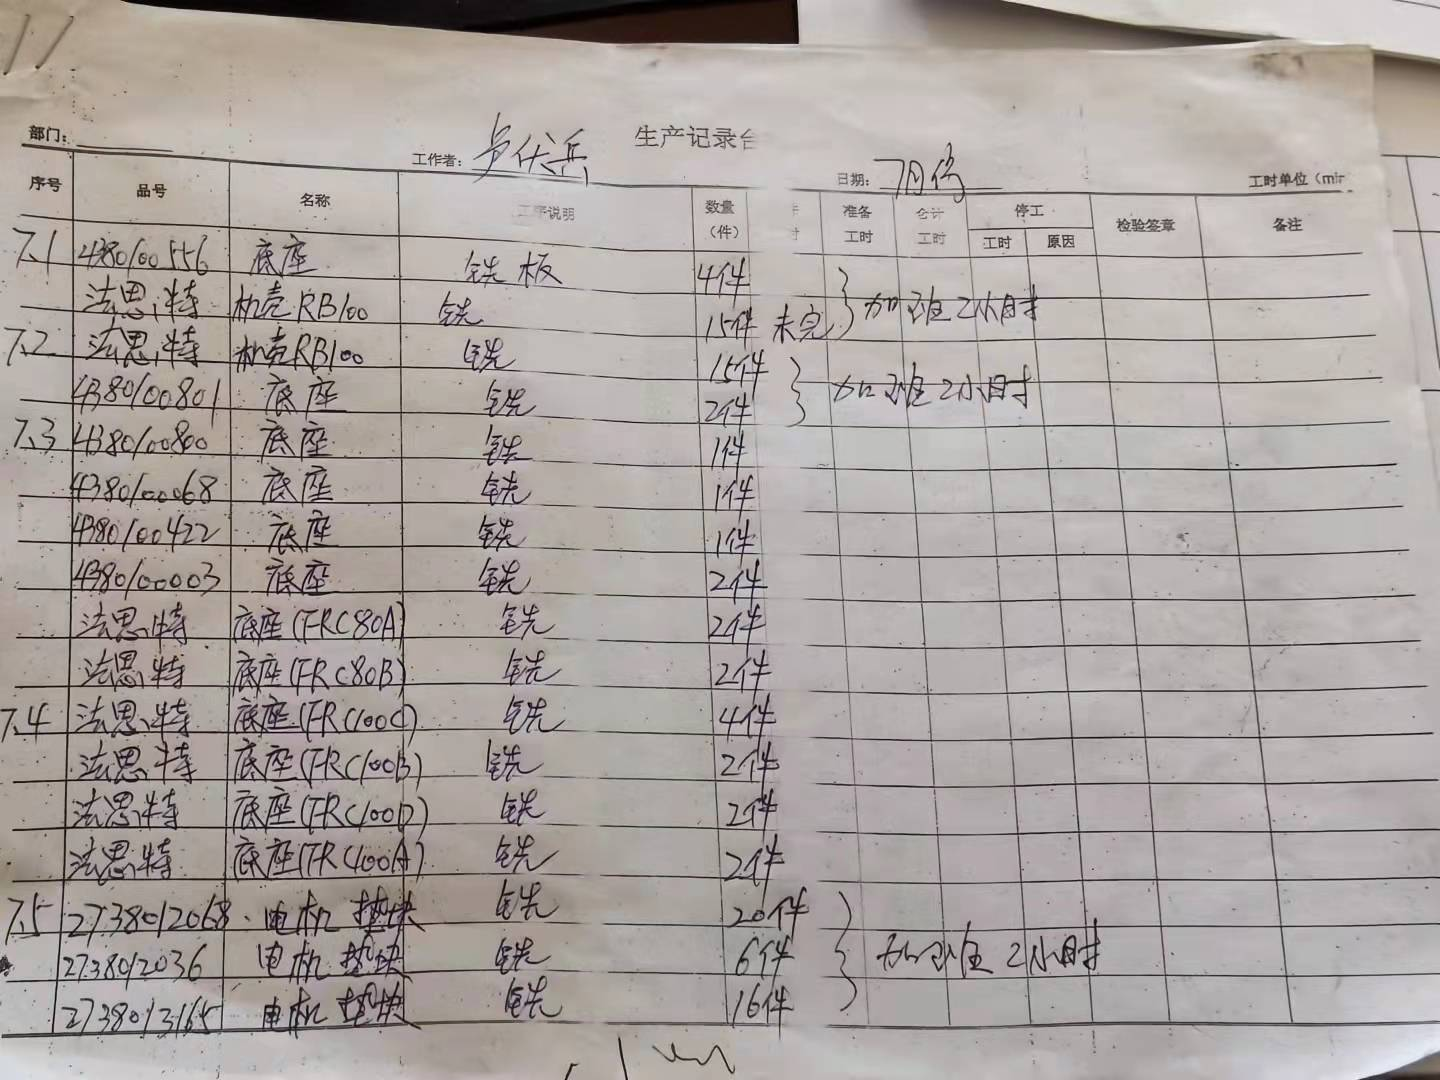 生产记录台
部门: 工作者: 伏兵 日期: 7月份 工时单位（min
序号 品号 名称 工序说明 数量（件） 准备工时 合计工时 停工 工时 原因 检验签章 备注
7.1 4380100556 底座 铣板 4件
法思特 机壳RB100 铣 15件 未完 加班2小时
7.2 法思特 机壳RB100 铣 15件
4380100801 底座 铣 2件 加班2小时
7.3 4380100800 底座 铣 1件
4380100068 底座 铣 1件
4380100422 底座 铣 1件
4380100003 底座 铣 2件
法思特 底座(FRC80A) 铣 2件
法思特 底座(FRC80B) 铣 2件
7.4 法思特 底座(FRC100C) 铣 4件
法思特 底座(FRC100B) 铣 2件
法思特 底座(FRC100D) 铣 2件
法思特 底座(FRC100A) 铣 2件
7.5 2738012068 电机垫块 铣 20件
2738012036 电机垫块 铣 6件 加班2小时
2738013165 电机垫块 铣 16件